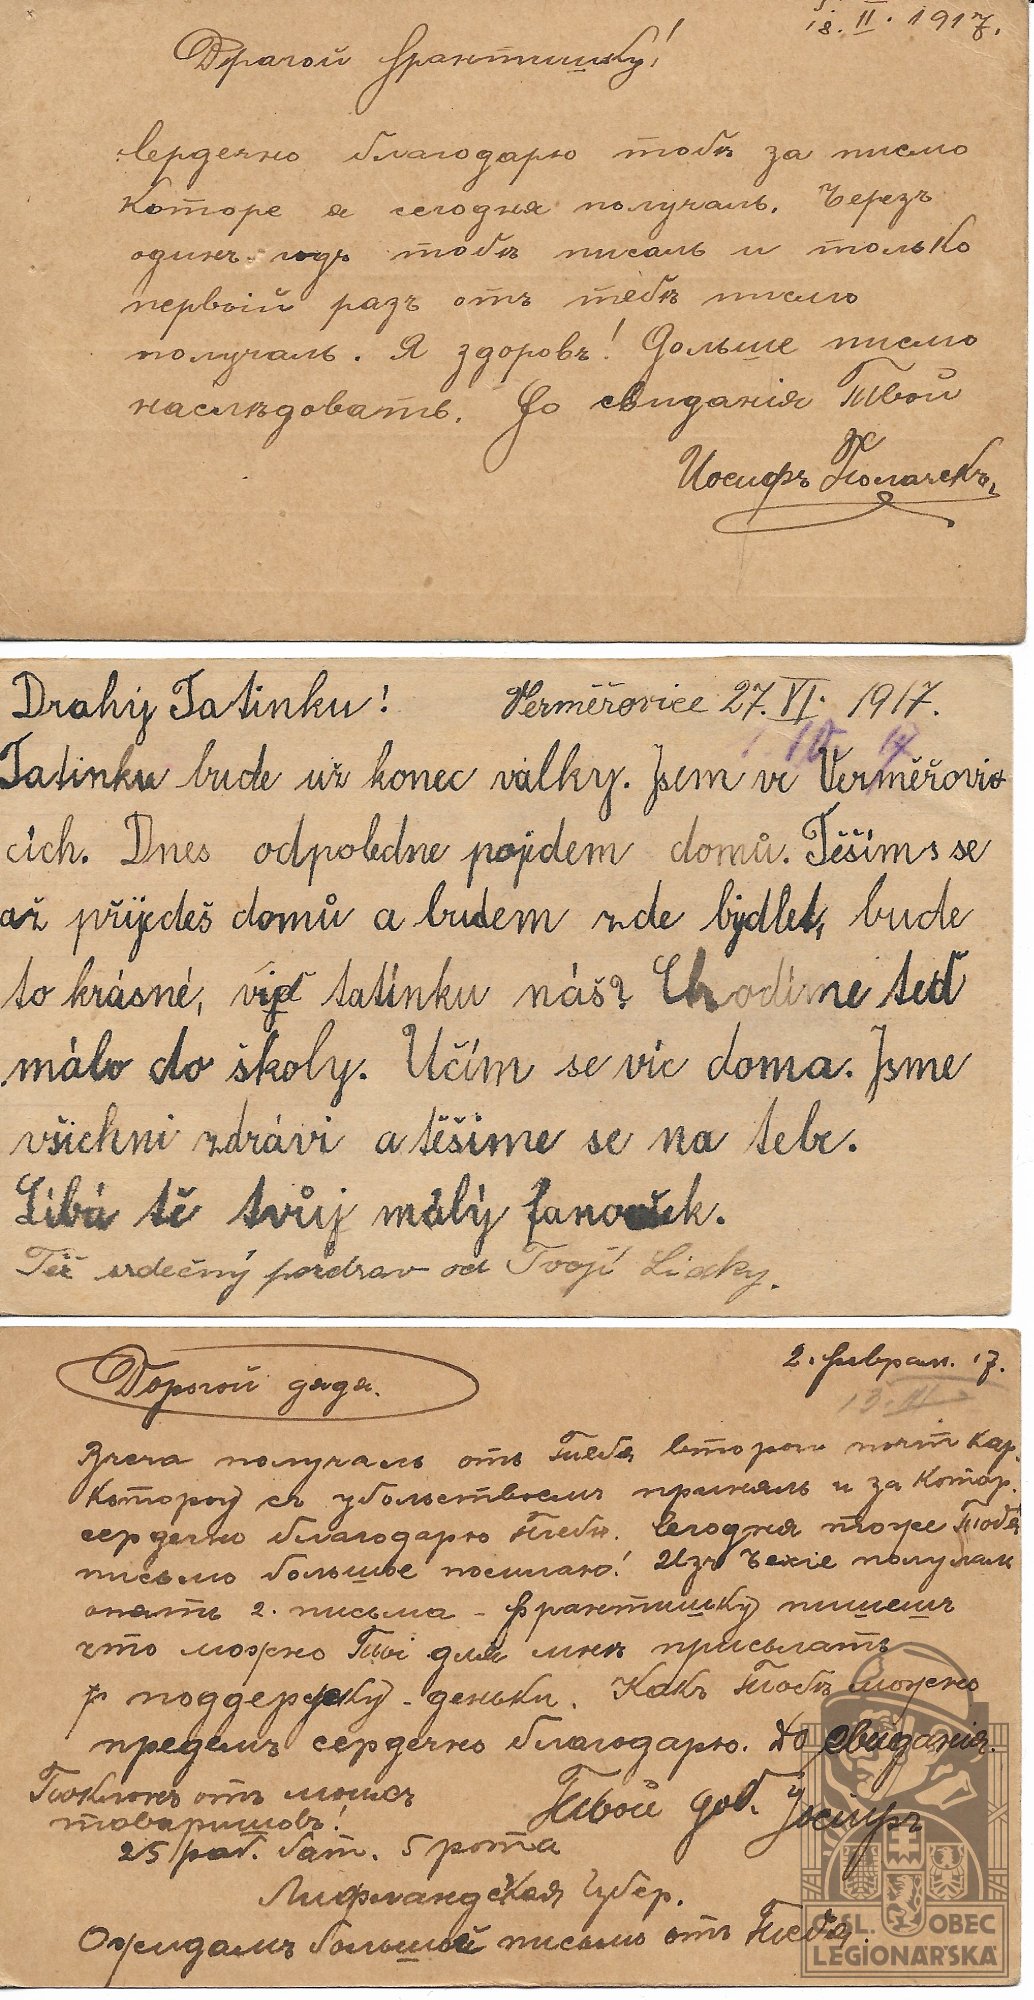 18. II. 1917.
Драгой Франтишку!
Сердечно благодарю тобѣ за писмо
которе я сегодня получалъ. Черезъ
одинъ годъ тобѣ писалъ и только
первый разъ отъ тебѣ писмо
получалъ. Я здоровъ! Дольше писмо
наслѣдоватъ. До свиданія Твой
Иосифъ
Drahý Tatinku! Verměřovice 27. VI. 1917.
Tatinku bude už konec valky. Jsem ve Verměřovi
cích. Dnes odpoledne pojdem domů. Těším se
až přijedeš domů a budem zde bydlet, bude
to krásné, viď tatínku náš? Chodíme teď
málo do školy. Učím se víc doma. Jsme
všichni zdrávi a těšime se na tebe.
Líbá tě tvůj malý Janoušek.
Též srdečný pozdrav od Tvojí Lidky.
2. феврал. 17.
13. II
Дорогой дядя.
Вчега получалъ отъ Тебя второю почт кар.
которою съ убольствиемъ принялъ и за котор.
сердечно благодарю Тебѣ. Сегодня тоже Тобѣ
письмо большое посилаю! Изъ Чехіе получалъ
опять 2. письма - Франтишку пишетъ
что можно Ты для мнѣ присылать
поддержку - деньки. Какъ Тобѣ можно
предемъ сердечно благодарю. До свиданія.
Поклонъ отъ моихъ Твой доб. Йосифъ
товаришовъ!
25 раб. бат. 5 рота
Лифландская Губер.
Ожидамъ большой письмо отъ Тебя.
ČSL. OBEC
LEGIONÁŘSKÁ